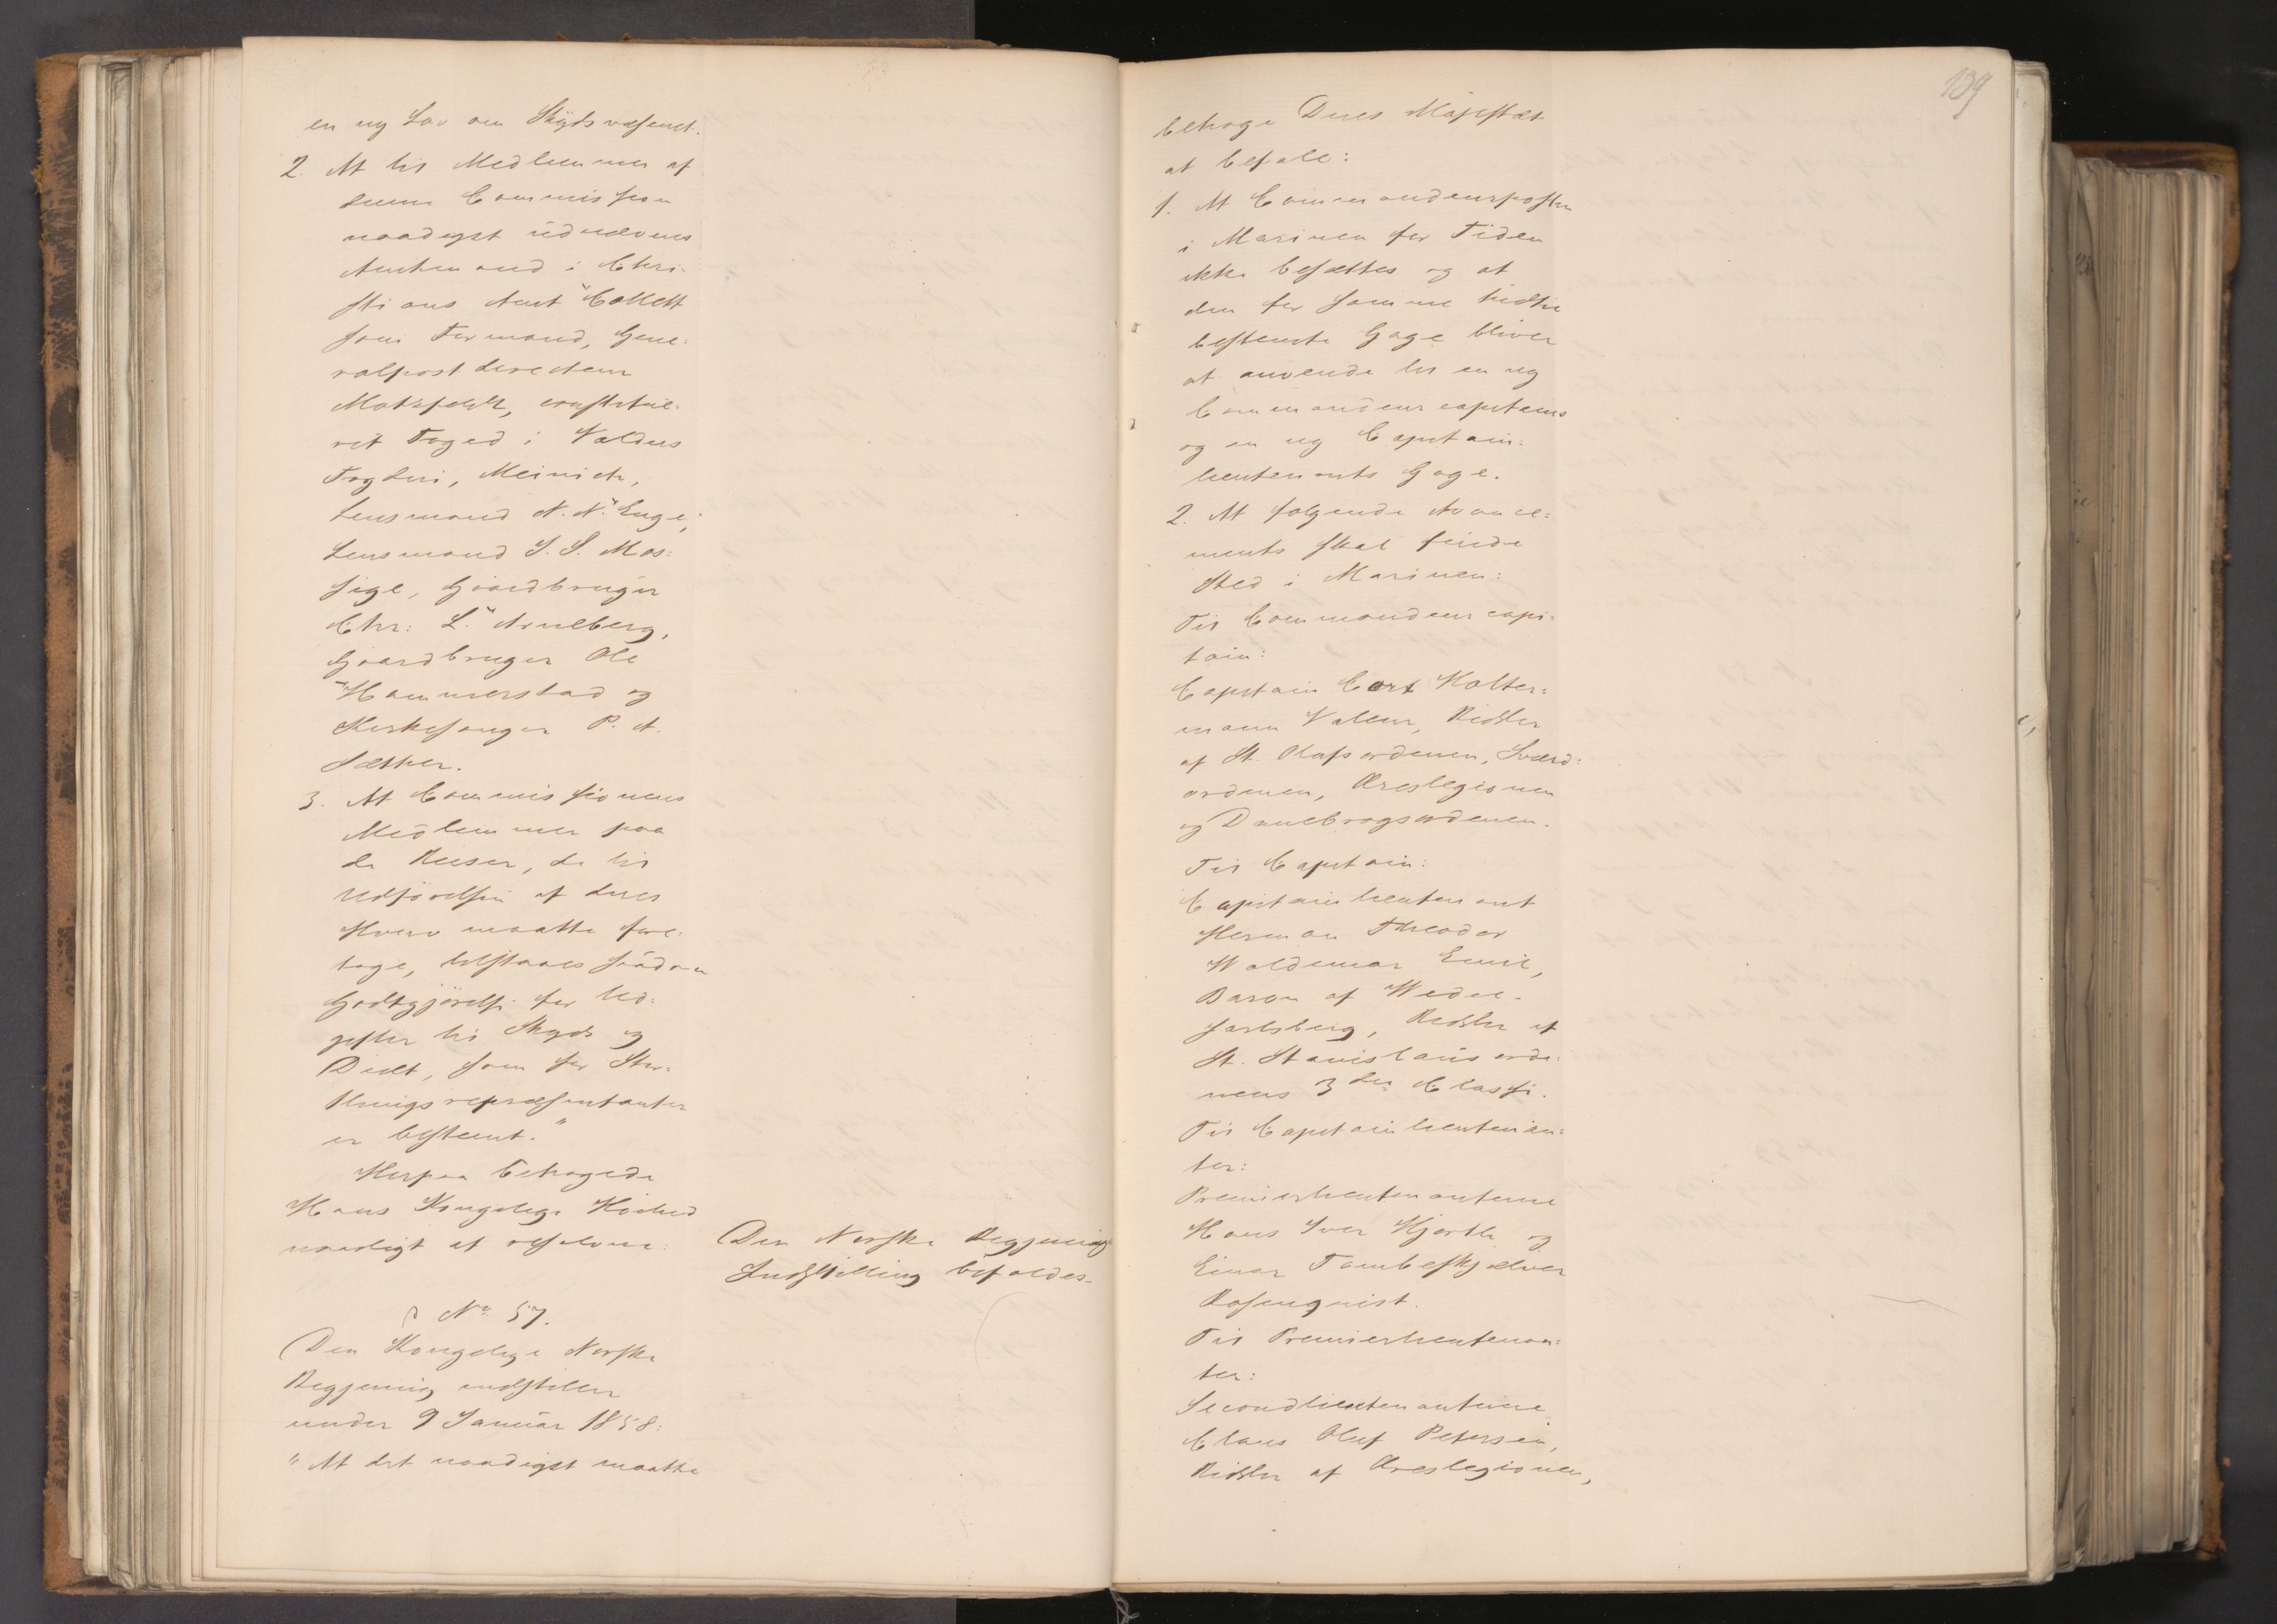 en ny Lov om Skydsvæsenet.
2. At til Medlemmer af
denne Commission
naadigst udnævnes
Amtmand i Chri-
stians Amt Collett
som Formand, Gene-
ralpostdirecteur
Motzfeldt, constitue-
ret Foged i Valders
Fogderi, Meinich,
Lensmand N. N. Enge,
Lensmand S. S. Mos-
sige, Gaardbruger
Chr: L. Arneberg,
Gaardbruger Ole
Hammerstad og
Kirkesanger P. A.
Sæther.
3. At Commissionens
Medlemmer paa
de Reiser, de til
Udførelsen af deres
Hverv maatte fore-
tage, tilstaaes saadan
Godtgjørelse for Ud-
gifter til Skyds og
Diæt, som for Stor-
thingsrepræsentanter
er bestemt."
Herpaa behagede
Hans Kongelige Høihed
naadigst at resolvere:
Den Norske Regjerings
Indstilling bifaldes.
No 57.
Den Kongelige Norske
Regjering indstiller
under 9 Januar 1858:
"At det naadigst maatte
139
behage Deres Majestæt
at befale:
1. At Commandeurposten
i Marinen for Tiden
ikke besættes og at
den for samme hidtil
bestemte Gage bliver
at anvende til en ny
Commandeurcapitains
og en ny Capitain-
lieutenants Gage.
2. At følgende Avance-
ments skal finde
Sted i Marinen:
Til Commandeurcapi-
tain:
Capitain Cort Kolter-
mann Valeur, Ridder
af St. Olafsordenen, Sværd-
ordenen, Æreslegionen
og Danebrogsordenen.
Til Capitain:
Capitainlieutenant
Herman Theodor
Waldemar Emil,
Baron af Wedel-
Jarlsberg, Ridder af
St. Stanislausorde-
nens 3die Classe.
Til Capitainlieutenan-
ter:
Premierlieutenanterne
Hans Iver Hjorth og
Einar Tambeskjælver
Rosenqvist.
Til Premierlieutenan-
ter:
Secondlieutenanterne
Claus Oluf Petersen,
Ridder af Æreslegionen,